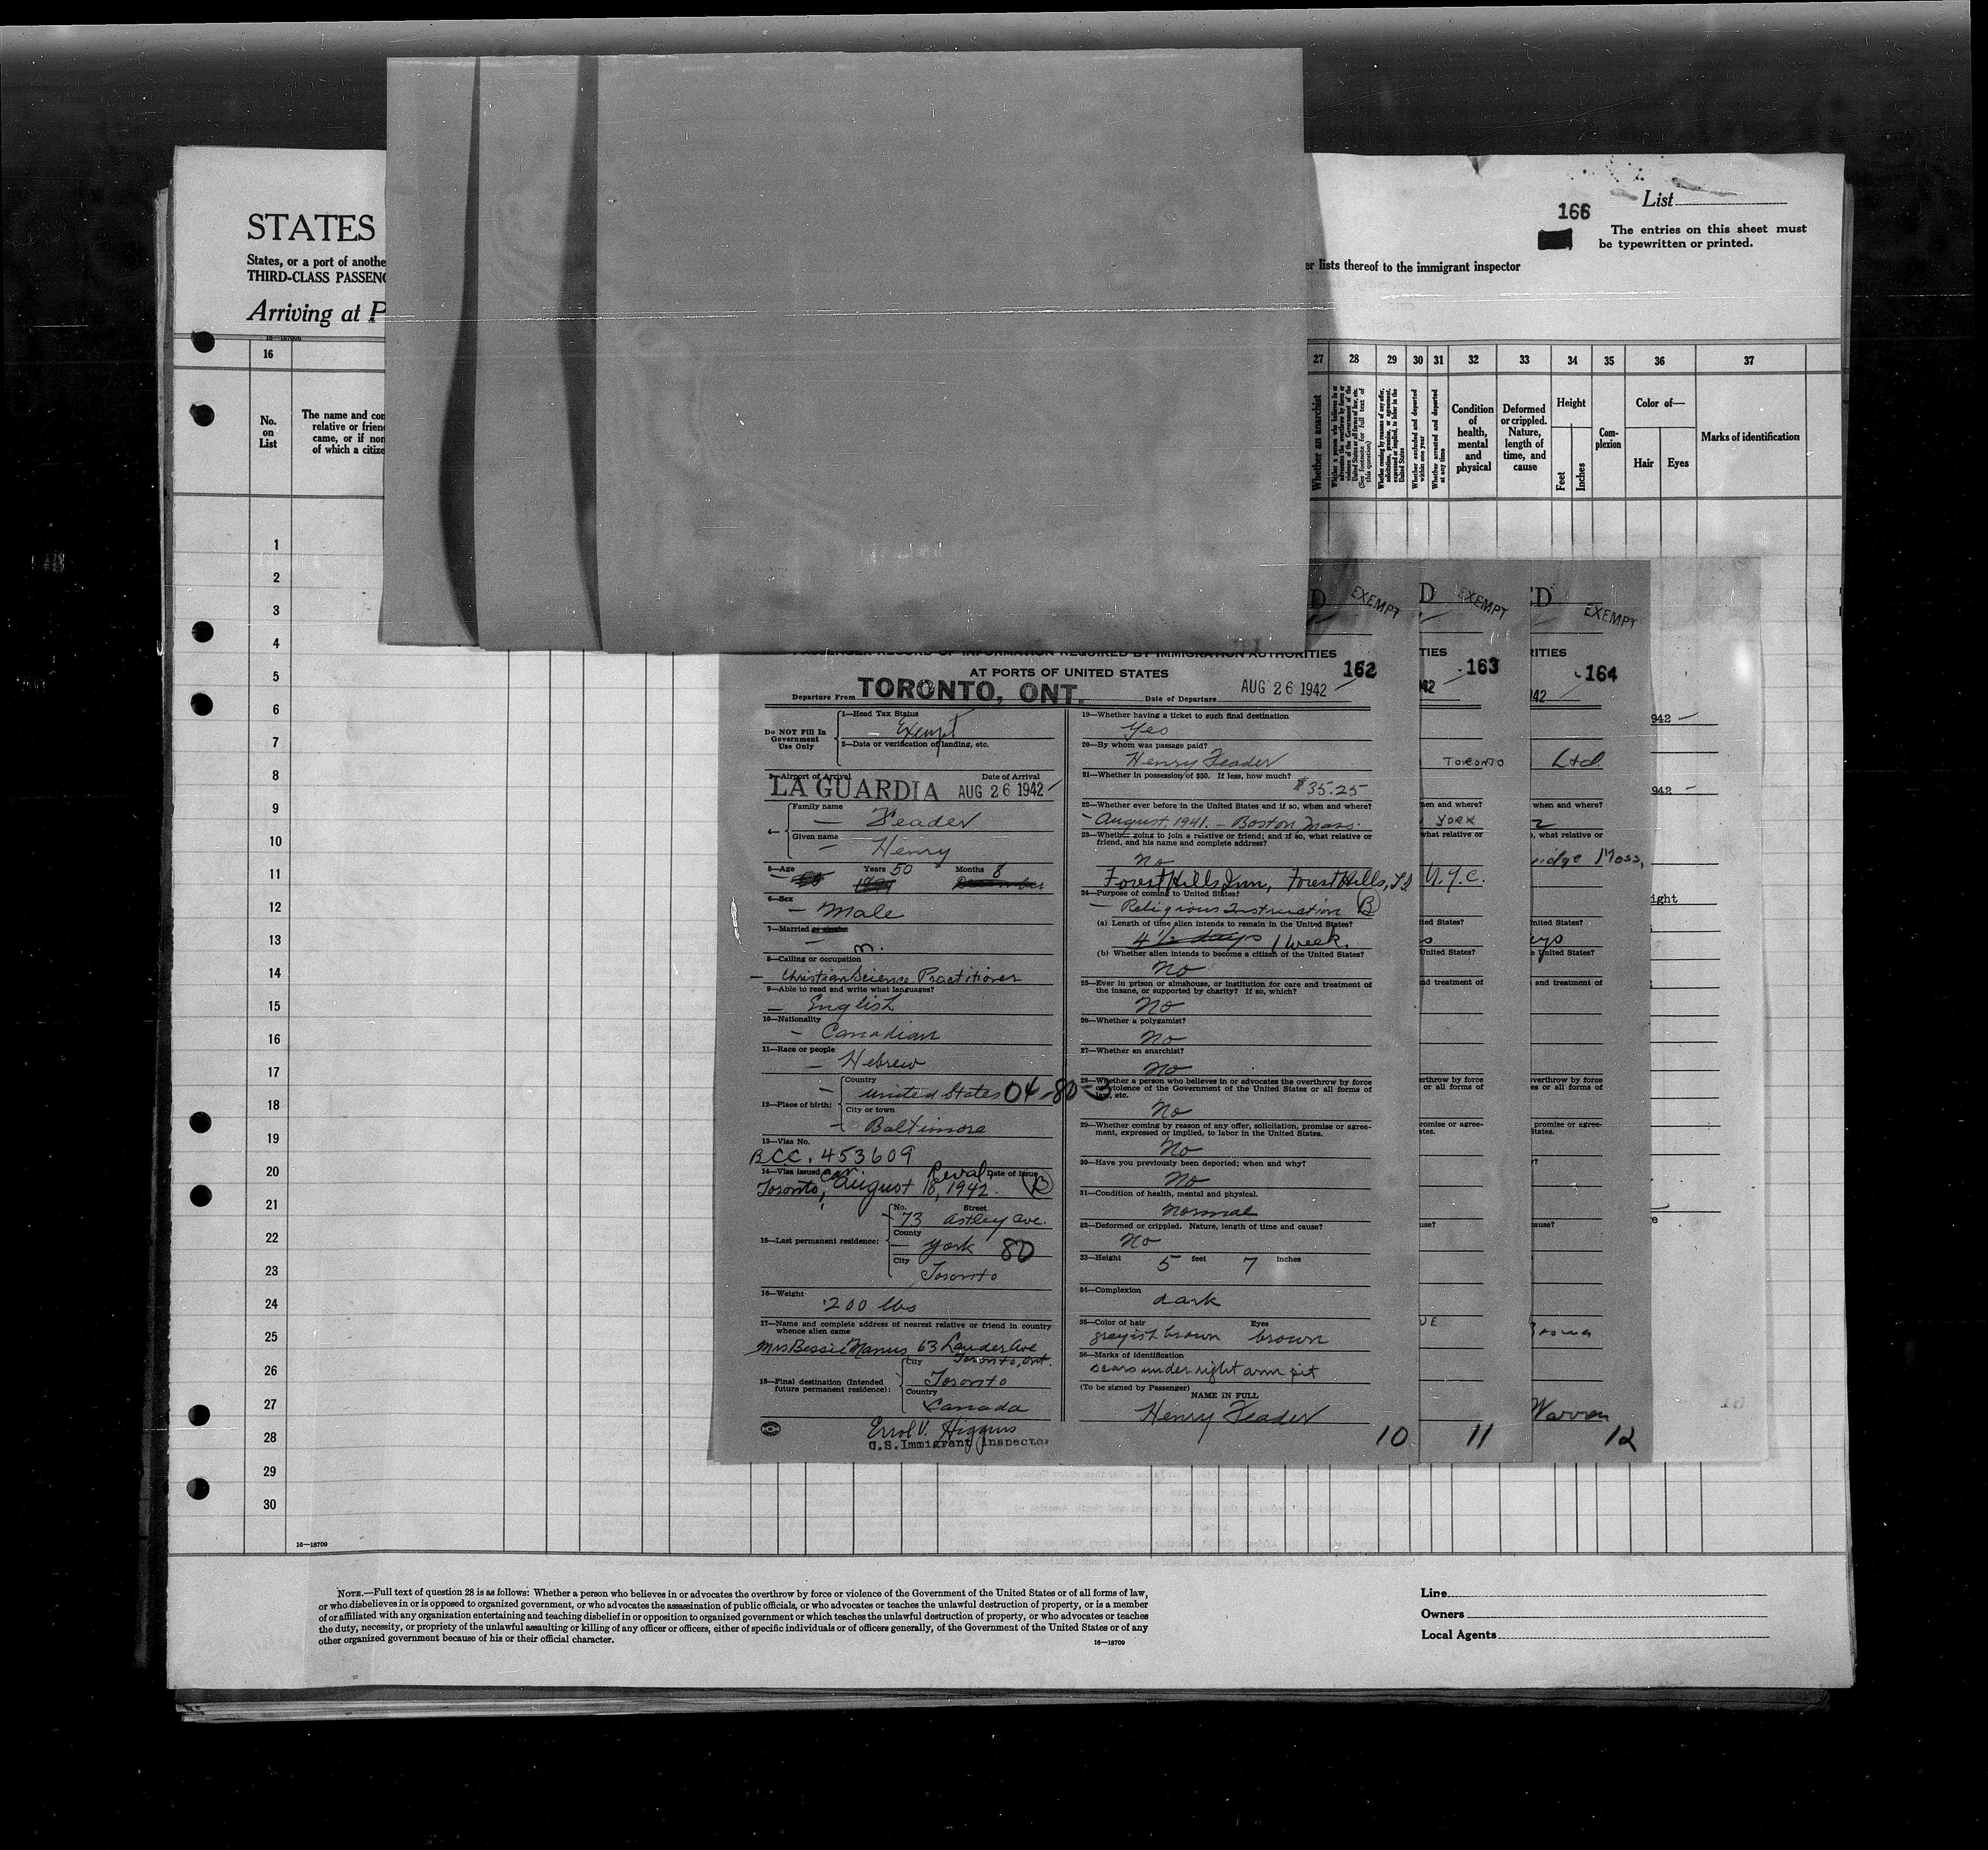 STATES
States, or a port of anothe
THIRD-CLASS PASSEN
Arriving at P
166
List
The entries on this sheet must
be typewritten or printed.
er lists thereof to the immigrant inspector
16
No.
on
List
The name and con
relative or frien
came, or if non
of which a citize
27
28
29
30
31
32
33
34
35
36
37
Whether an anarchist
Whether excluded and deported
within one year
Whether arrested and deported
at any time
Condition
of
health,
mental
and
physical
Deformed
or crippled.
Nature,
length of
time, and
cause
Height
Feet
Inches
Com-
plexion
Color of—
Hair
Eyes
Marks of identification
1
2
3
4
5
6
7
8
9
10
11
12
13
14
15
16
17
18
19
20
21
22
23
24
25
26
27
28
29
30
16—18709
D EXEMPT
PASSENGER RECORD OF INFORMATION REQUIRED BY IMMIGRATION AUTHORITIES
AT PORTS OF UNITED STATES
162
Departure From TORONTO, ONT. Date of Departure AUG 26 1942
Do NOT Fill In
Government
Use Only
1—Head Tax Status
Exempt
2—Data or verification of landing, etc.
3—Airport of Arrival Date of Arrival
LA GUARDIA AUG 26 1942
4—
Family name
Feader
Given name
Henry
5—Age Years 50 Months 8
6—Sex
Male
7—Married or single
m.
8—Calling or occupation
Christian Science Practitioner
9—Able to read and write what languages?
English
10—Nationality
Canadian
11—Race or people
Hebrew
12—Place of birth:
Country
United States 04-80-3
City or town
Baltimore
13—Visa No.
BCC. 453609
14—Visa issued at Date of issue
Toronto, August 18, 1942. B
15—Last permanent residence:
No. Street
73 Astley Ave.
County
York 80
City
Toronto
16—Weight
200 lbs
17—Name and complete address of nearest relative or friend in country
whence alien came
Mrs Bessie Manus 63 Lauder Ave
Toronto, Ont.
18—Final destination (Intended
future permanent residence):
City
Toronto
Country
Canada
Errol V. Higgins
U.S. Immigrant Inspector
19—Whether having a ticket to such final destination
Yes
20—By whom was passage paid?
Henry Feader
21—Whether in possession of $50. If less, how much?
$35.25
22—Whether ever before in the United States and if so, when and where?
August, 1941. - Boston Mass.
23—Whether going to join a relative or friend; and if so, what relative or
friend, and his name and complete address?
no
Forest Hills Inn, Forest Hills, LI N.Y.C.
24—Purpose of coming to United States?
Religious Instruction B
(a) Length of time alien intends to remain in the United States?
4½ days 1 week.
(b) Whether alien intends to become a citizen of the United States?
no
25—Ever in prison or almshouse, or institution for care and treatment of
the insane, or supported by charity? If so, which?
no
26—Whether a polygamist?
no
27—Whether an anarchist?
no
28—Whether a person who believes in or advocates the overthrow by force
or violence of the Government of the United States or all forms of
law, etc.
no
29—Whether coming by reason of any offer, solicitation, promise or agree-
ment, expressed or implied, to labor in the United States.
no
30—Have you previously been deported; when and why?
no
31—Condition of health, mental and physical.
normal
32—Deformed or crippled. Nature, length of time and cause?
no
33—Height 5 feet 7 inches
34—Complexion
dark
35—Color of hair Eyes
greyish brown brown
36—Marks of identification
scars under right arm pit
(To be signed by Passenger)
NAME IN FULL
Henry Feader
10
D EXEMPT
TIES
163
42
TORONTO
hen and where?
YORK
what relative or
ted States?
s
United States?
nd treatment of
erthrow by force
or all forms of
romise or agree-
ates.
use?
UE
11
'D EXEMPT
RITIES
164
942
Ltd.
when and where?
, what relative or
ridge Mass,
nited States?
ays
e United States?
and treatment of
verthrow by force
es or all forms of
promise or agree-
States.
cause?
Brown
Warren
12
942
942
ight
NOTE.—Full text of question 28 is as follows: Whether a person who believes in or advocates the overthrow by force or violence of the Government of the United States or of all forms of law,
or who disbelieves in or is opposed to organized government, or who advocates the assassination of public officials, or who advocates or teaches the unlawful destruction of property, or is a member
of or affiliated with any organization entertaining and teaching disbelief in or opposition to organized government or which teaches the unlawful destruction of property, or who advocates or teaches
the duty, necessity, or propriety of the unlawful assaulting or killing of any officer or officers, either of specific individuals or of officers generally, of the Government of the United States or of any
other organized government because of his or their official character.
16—18709
Line
Owners
Local Agents